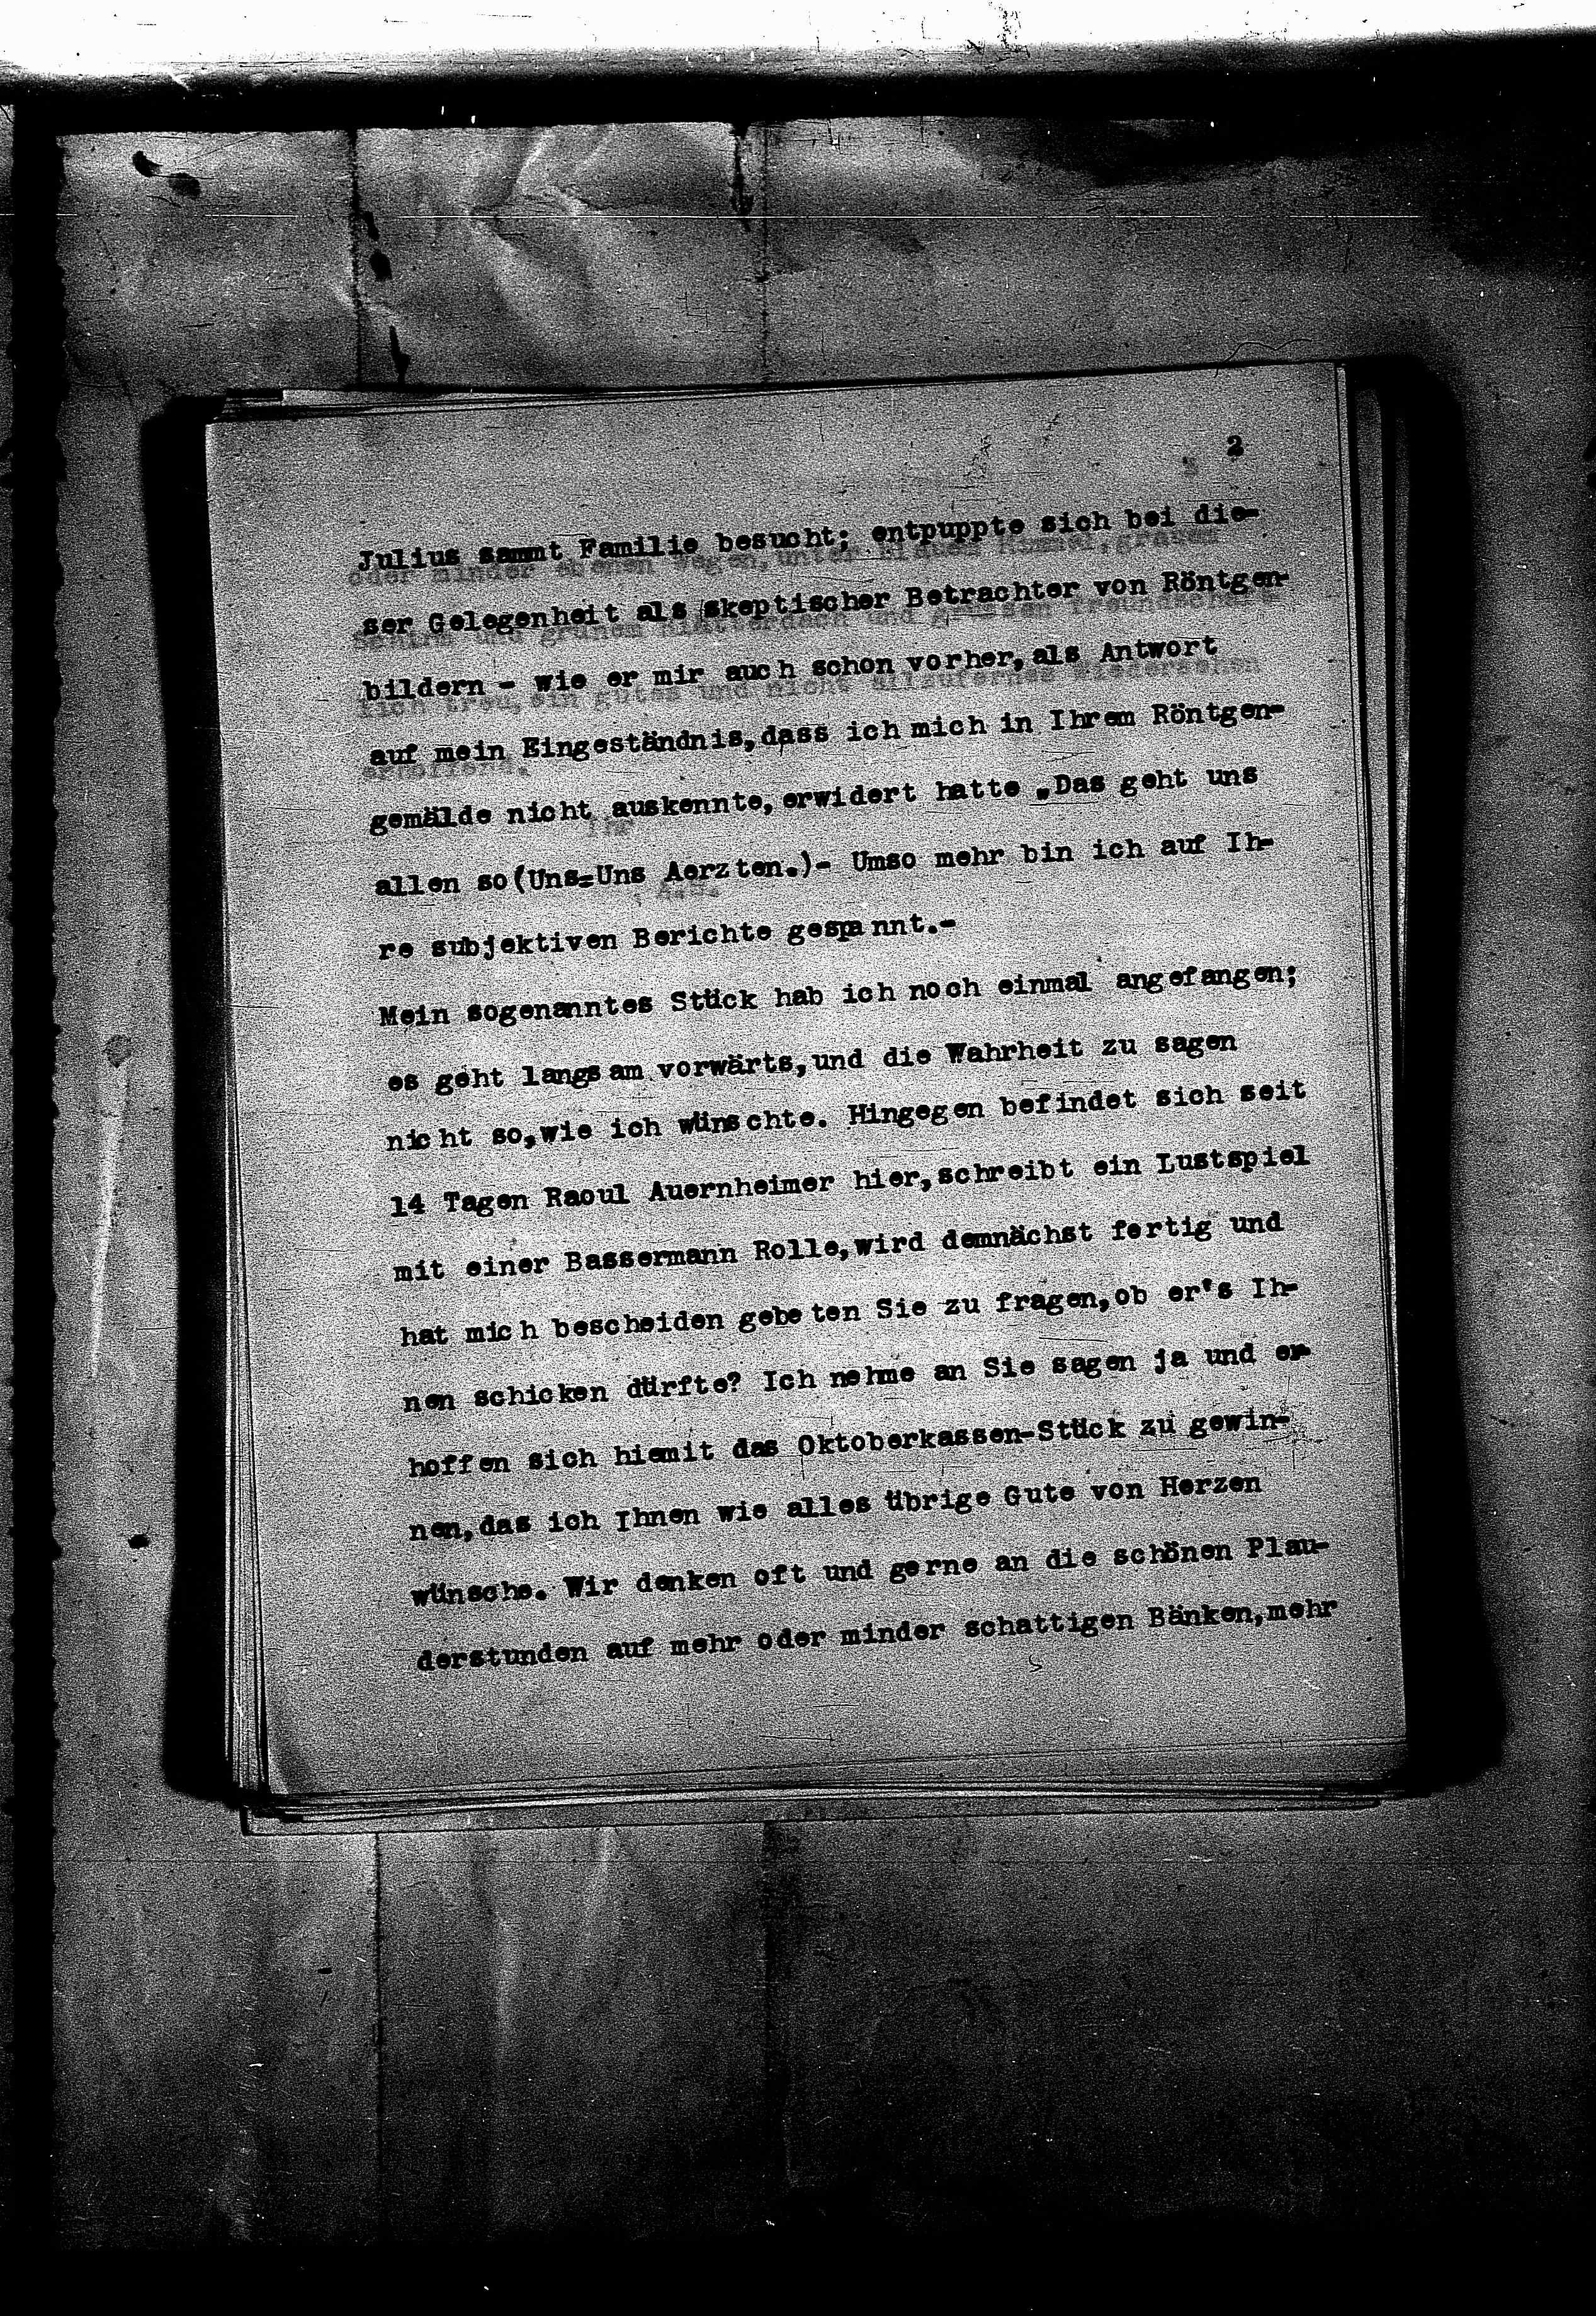 2
Julius sammt Familie besucht; entpuppte sich bei die-
ser Gelegenheit als skeptischer Betrachter von Röntgen-
bildern - wie er mir auch schon vorher, als Antwort
auf mein Eingeständnis, dass ich mich in Ihrem Röntgen-
gemälde nicht auskennte, erwidert hatte „Das geht uns
allen so (Uns=Uns Aerzten.)- Umso mehr bin ich auf Ih-
re subjektiven Berichte gespannt.-
Mein sogenanntes Stück hab ich noch einmal angefangen;
es geht langsam vorwärts, und die Wahrheit zu sagen
nicht so, wie ich wünschte. Hingegen befindet sich seit
14 Tagen Raoul Auernheimer hier, schreibt ein Lustspiel
mit einer Bassermann Rolle, wird demnächst fertig und
hat mich bescheiden gebeten Sie zu fragen, ob er's Ih-
nen schicken dürfte? Ich nehme an Sie sagen ja und er-
hoffen sich hiemit das Oktoberkassen-Stück zu gewin-
nen, das ich Ihnen wie alles übrige Gute von Herzen
wünsche. Wir denken oft und gerne an die schönen Plau-
derstunden auf mehr oder minder schattigen Bänken, mehr